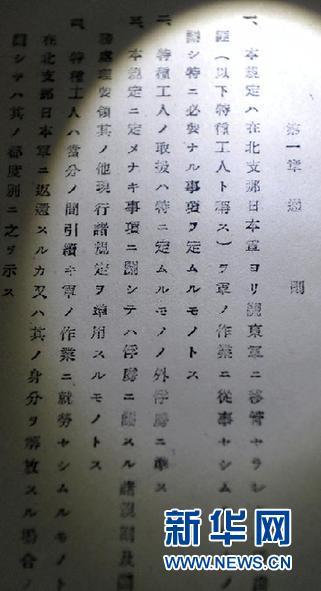 第一章 通 則
一、本規定ハ在北支那日本軍ヨリ關東軍ニ移管セラレシ
(以下特種工人ト稱ス)ヲ軍ノ作業ニ從事セシム ノ
關シ特ニ必要ナル事項ヲ定ムルモノトス
二、特種工人ノ取扱ハ特ニ定ムルモノノ外俘虜ニ準ス
三、本規定ニ定メナキ事項ニ關シテハ俘虜ニ關スル諸規則及
務處理要領其ノ他現行諸規定ヲ準用スルモノトス
四、特種工人ハ當分ノ間引續キ軍ノ作業ニ就勞セシムルモノト
在北支那日本軍ニ返還スルカ又ハ其ノ身分ヲ解放スル場合ノ
關シテハ其ノ都度別ニ之ヲ示ス
新华网
WWW.NEWS.CN